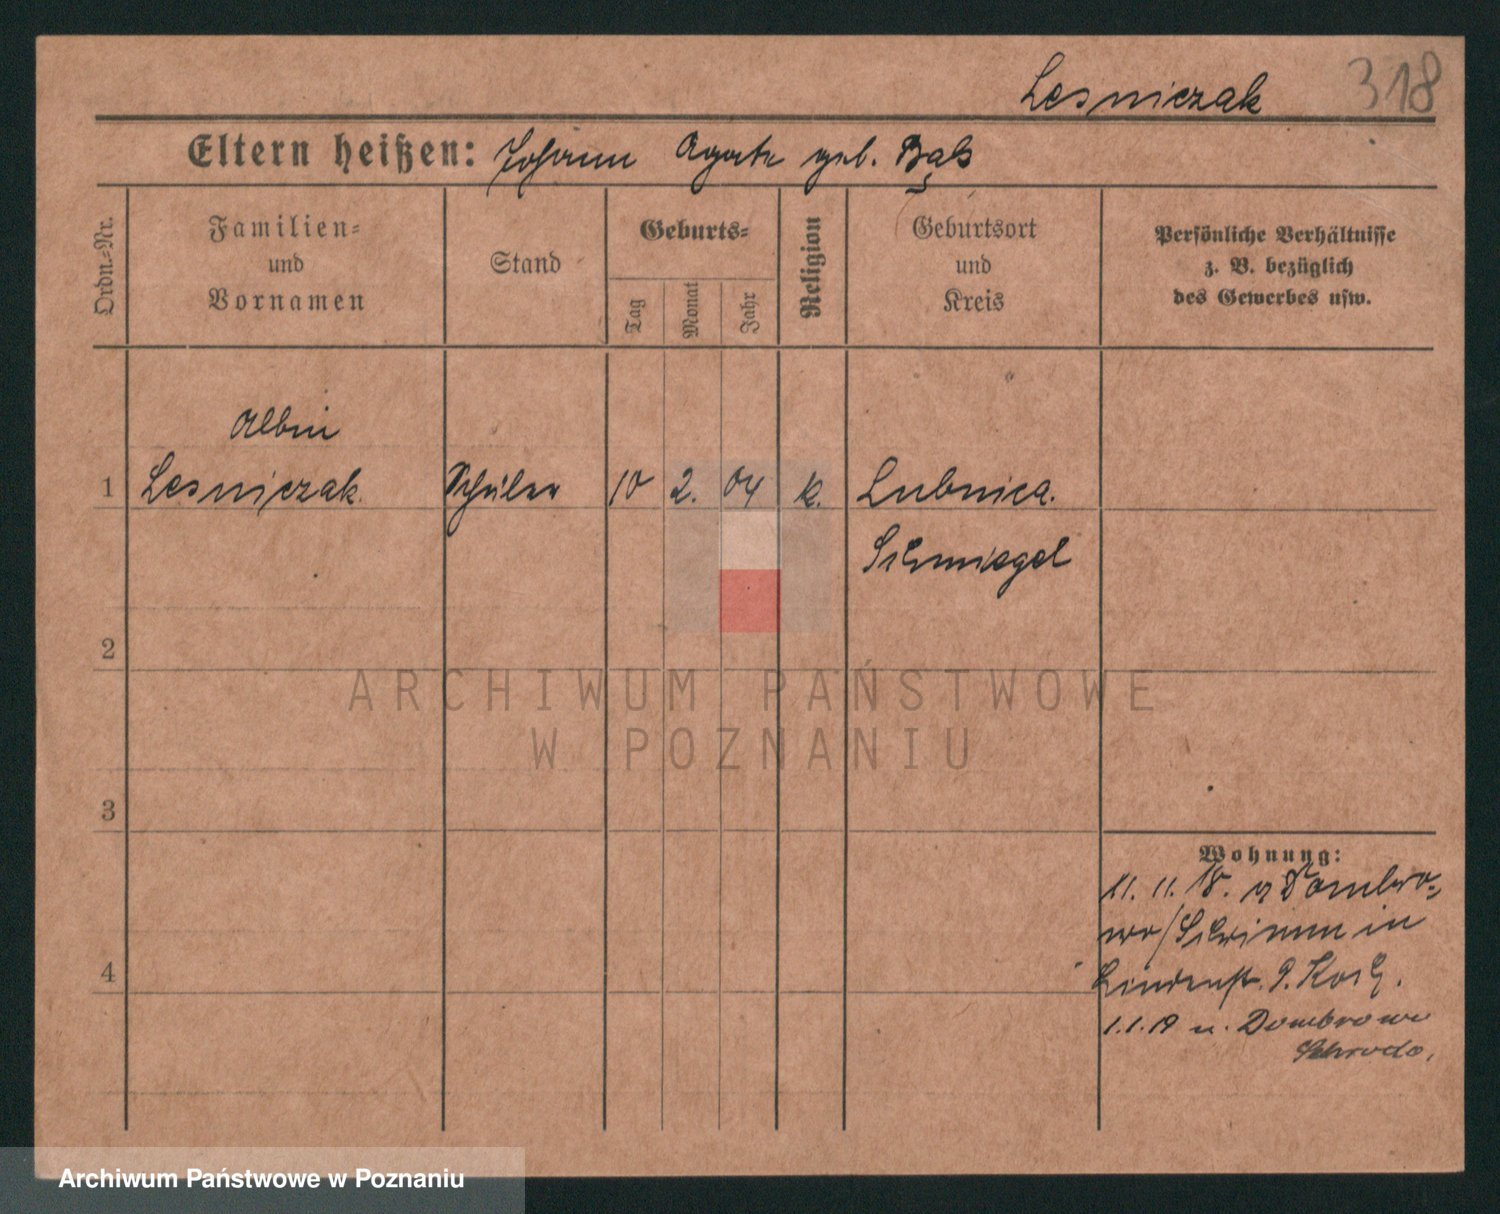 Lesniczak 318
Eltern heißen: Johann Agate geb. Bąk
Ordn.-Nr.
Familien-
und
Vornamen
Stand
Geburts-
Tag
Monat
Jahr
Religion
Geburtsort
und
Kreis
Persönliche Verhältnisse
z. B. bezüglich
des Gewerbes usw.
Albin
1 Lesniczak Schüler 10 2. 04 k. Lubnica.
Schmiegel
2
ARCHIWUM PAŃSTWOWE
W POZNANIU
3
Wohnung:
11. 11. 18. Dombro-
wo/Schrimm in
4
Lindenstr. 9.
1.1.19 n. Dombrowo
Schroda.
Archiwum Państwowe w Poznaniu